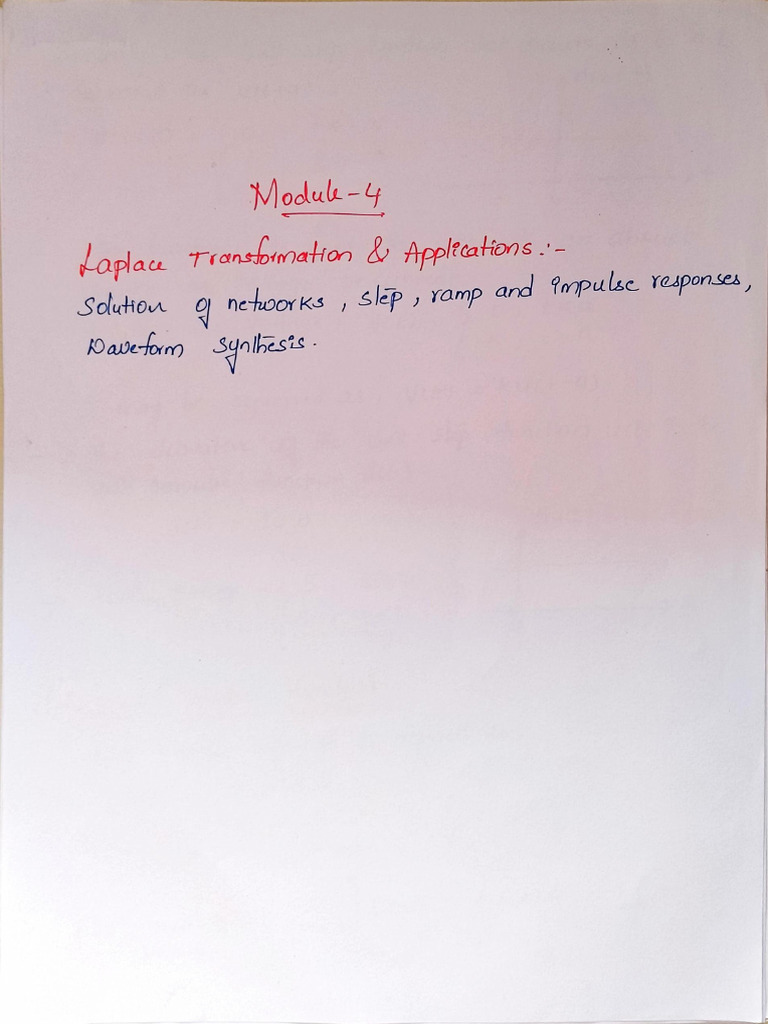 Module-4
Laplace Transformation & Applications:-
Solution of networks, step, ramp and impulse responses,
Waveform synthesis.